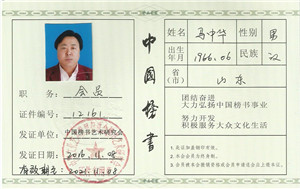 职 务: 会员
证件编号: 12161
发证单位: 中国榜书艺术研究会
发证日期: 2016.11.08
有效期至: 2021.11.08
中國榜書
姓名 马中华 性别 男
出生年月 1966.06 民族 汉
省(市) 山东
团结奋进
大力弘扬中国榜书事业
努力开发
积极服务大众文化生活